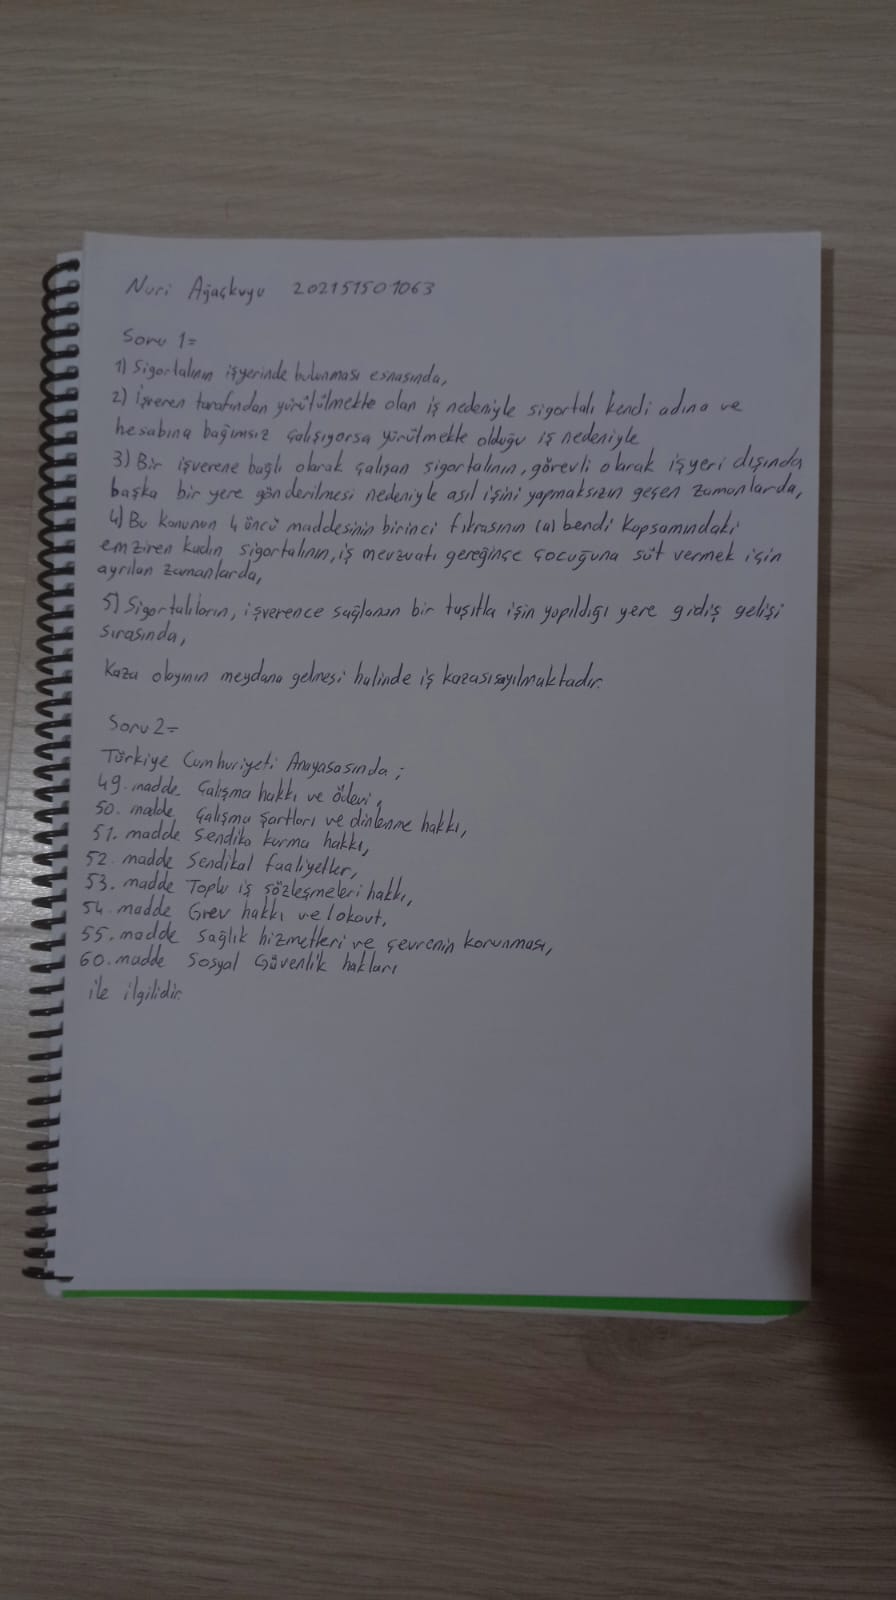 Nuri Ağaçkuyu 202151501063
Soru 1=
1) Sigortalının işyerinde bulunması esnasında,
2) İşveren tarafından yürütülmekte olan iş nedeniyle sigortalı kendi adına ve
hesabına bağımsız çalışıyorsa yürütmekte olduğu iş nedeniyle
3) Bir işverene bağlı olarak çalışan sigortalının, görevli olarak işyeri dışında
başka bir yere gönderilmesi nedeniyle asıl işini yapmaksızın geçen zamanlarda,
4) Bu kanunun 4 üncü maddesinin birinci fıkrasının (a) bendi kapsamındaki
emziren kadın sigortalının, iş mevzuatı gereğince çocuğuna süt vermek için
ayrılan zamanlarda,
5) Sigortalıların, işverence sağlanan bir taşıtla işin yapıldığı yere gidiş gelişi
sırasında,
Kaza olayının meydana gelmesi halinde iş kazası sayılmaktadır.
Soru 2=
Türkiye Cumhuriyeti Anayasasında;
49. madde Çalışma hakkı ve ödevi,
50. madde çalışma şartları ve dinlenme hakkı,
51. madde Sendika kurma hakkı,
52. madde Sendikal faaliyetler,
53. madde Toplu iş sözleşmeleri hakkı,
54. madde Grev hakkı ve lokavt,
55. madde sağlık hizmetleri ve çevrenin korunması,
60. madde Sosyal Güvenlik hakları
ile ilgilidir.